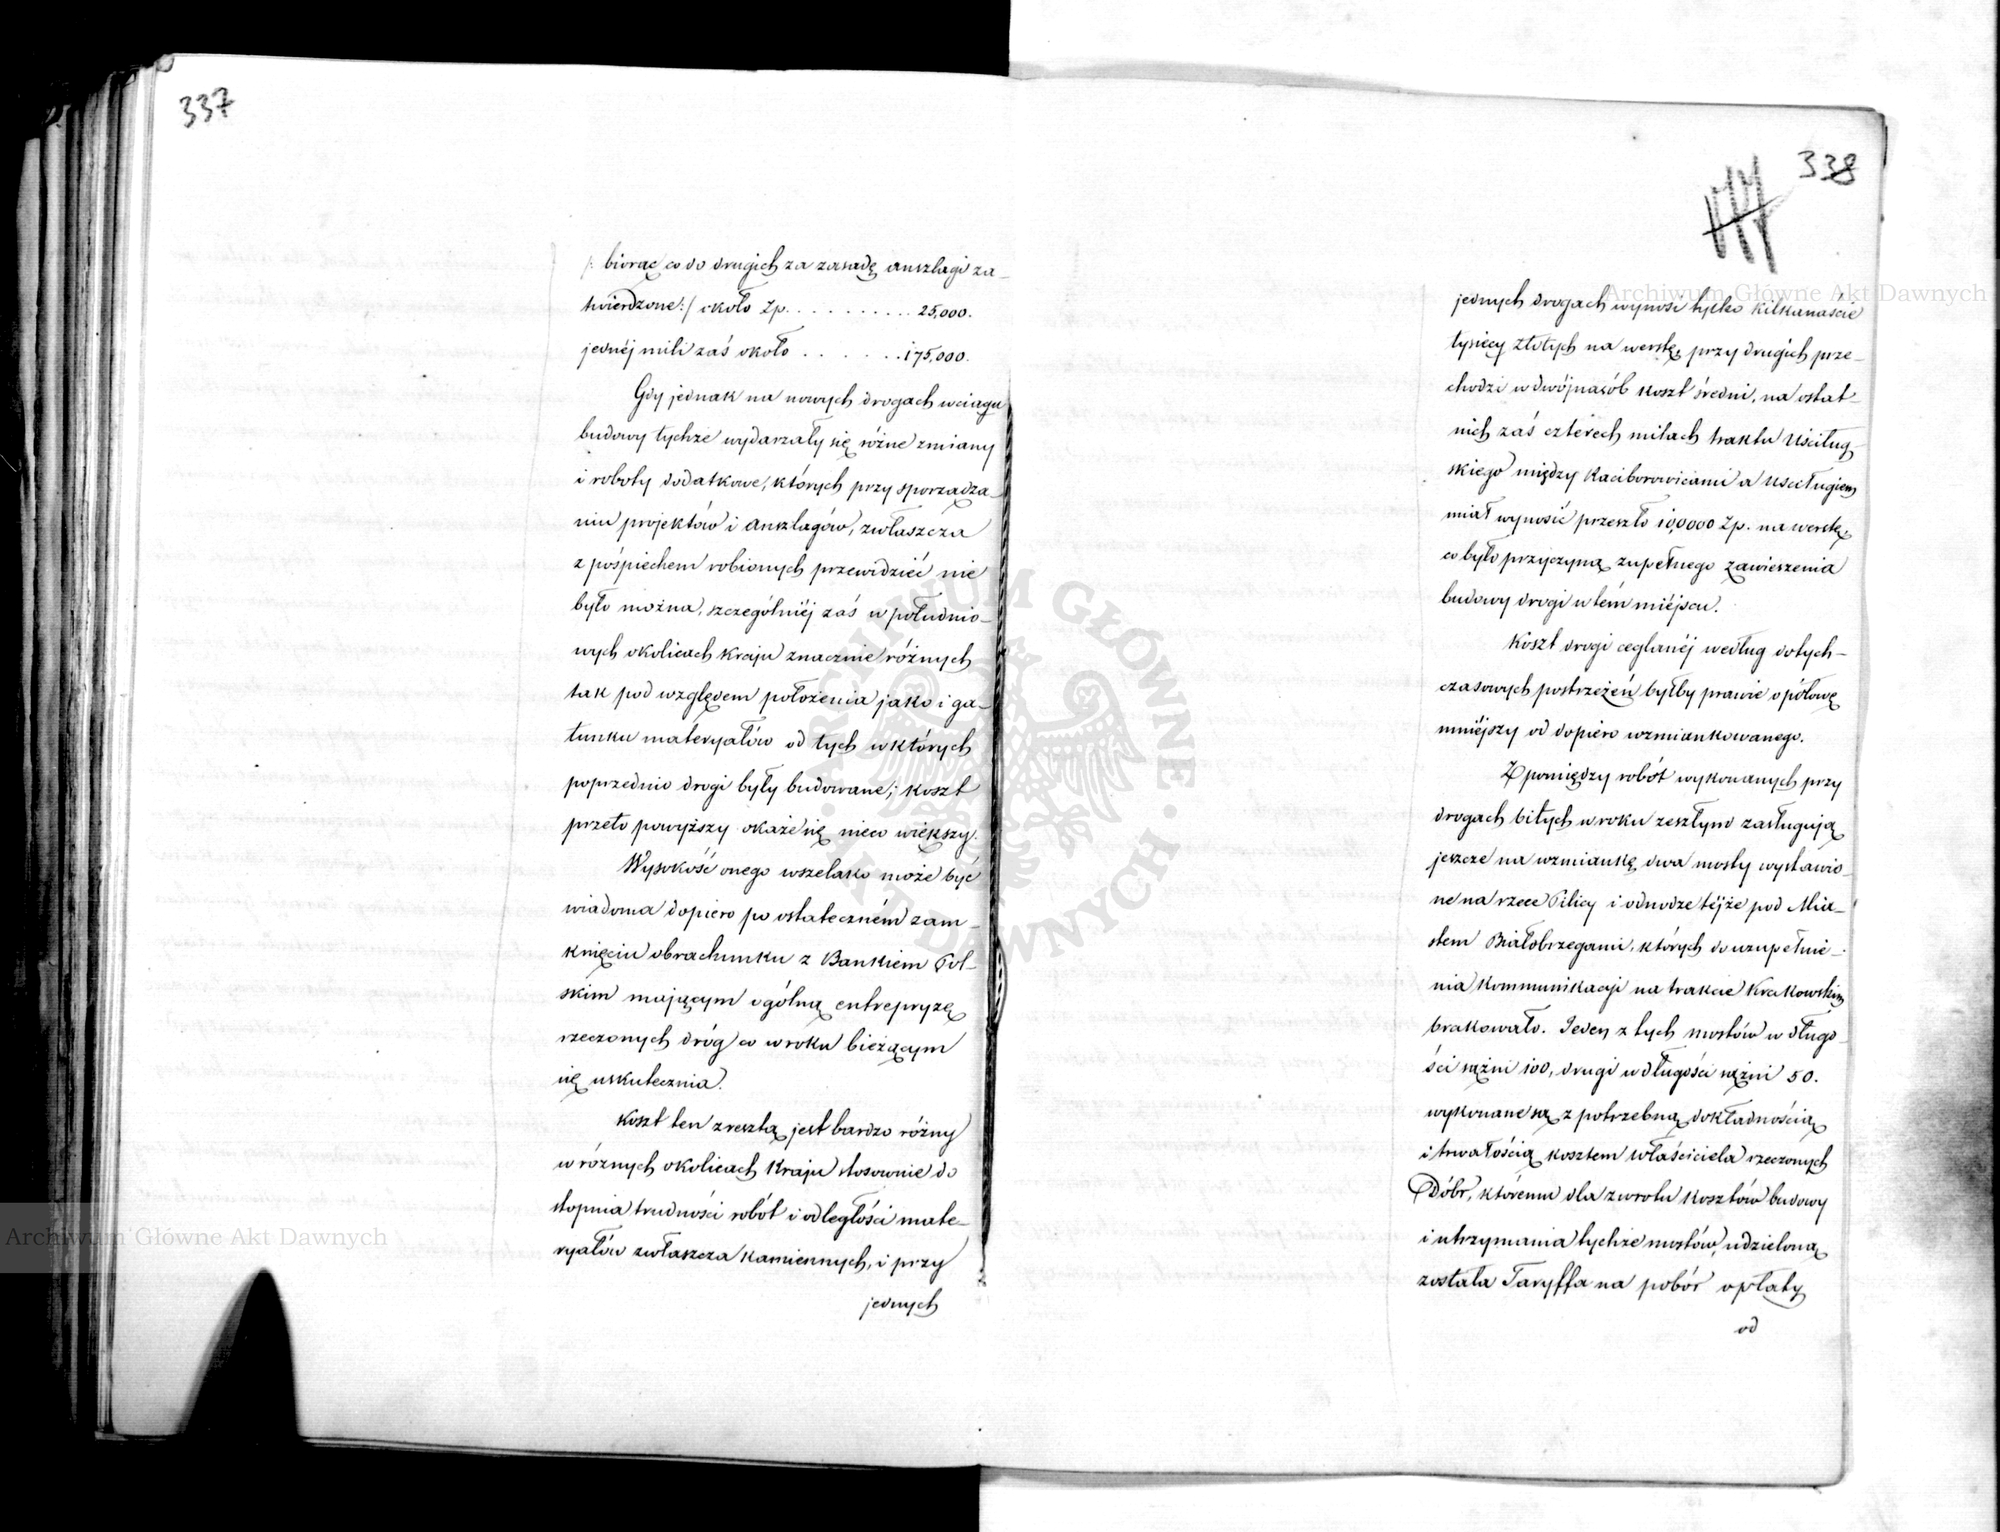 337
/: biorąc co do drugich za zasadę anszlagi za-
twierdzone :/ około Zp. . . . . . . . . . 25,000.
jednéj mili zaś około . . . . . . . 175,000.
Gdy jednak na nowych drogach w ciągu
budowy tychże wydarzały się różne zmiany
i roboty dodatkowe, których przy sporządza-
niu projektów i anszlagów, zwłaszcza
z pośpiechem robionych przewidzieć nie
było można, szczególniéj zaś w południo-
wych okolicach kraju znacznie różnych
tak pod względem położenia jako i ga-
tunku materyałów od tych w których
poprzednio drogi były budowane; koszt
przeto powyższy okaże się nieco większy.
Wysokość onego wszelako może być
wiadoma dopiero po ostateczném zam-
knięciu obrachunku z Bankiem Pol-
skim mającym ogólną entrepryzę
rzeczonych dróg co w roku bieżącym
się uskutecznia.
Koszt ten zresztą jest bardzo różny
w różnych okolicach Kraju stosownie do
stopnia trudności robót i odległości mate-
ryałów zwłaszcza kamiennych, i przy
jednych
338
jednych drogach wynosi tylko kilkanaście
tysięcy złotych na werstę, przy drugich prze-
chodzi w dwójnasób koszt średni, na ostat-
nich zaś czterech milach traktu Uściług-
skiego między Raciborowicami a Uściługiem
miał wynosić przeszło 100,000 Zp. na werstę
co było przyczyną zupełnego zawieszenia
budowy drogi w tém miéjscu.
Koszt drogi ceglanéj według dotych-
czasowych postrzeżeń byłby prawie o połowę
mniéjszy od dopiero wzmiankowanego.
Z pomiędzy robót wykonanych przy
drogach bitych w roku zeszłym zasługują
jeszcze na wzmiankę dwa mosty wystawio-
ne na rzece Pilicy i odnodze téjże pod Mia-
stem Białobrzegami, których do uzupełnie-
nia kommunikacji na trakcie Krakowskim
brakowało. Jeden z tych mostów w długo-
ści sążni 100, drugi w długości sążni 50.
wykonane są z potrzebną dokładnością
i trwałością kosztem właściciela rzeczonych
Dóbr, któremu dla zwrotu kosztów budowy
i utrzymania tychże mostów, udzieloną
została Taryffa na pobór opłaty
od
Archiwum Główne Akt Dawnych
Archiwum Główne Akt Dawnych
ARCHIWUM GŁÓWNE AKT DAWNYCH